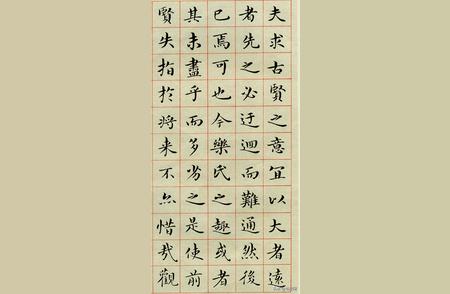 夫求古賢之意宜以大者遠
者先之必迂迴而難通然後
已焉可也今樂氏之趣或者
其未盡乎而多劣之是使前
賢失指於将来不亦惜哉觀